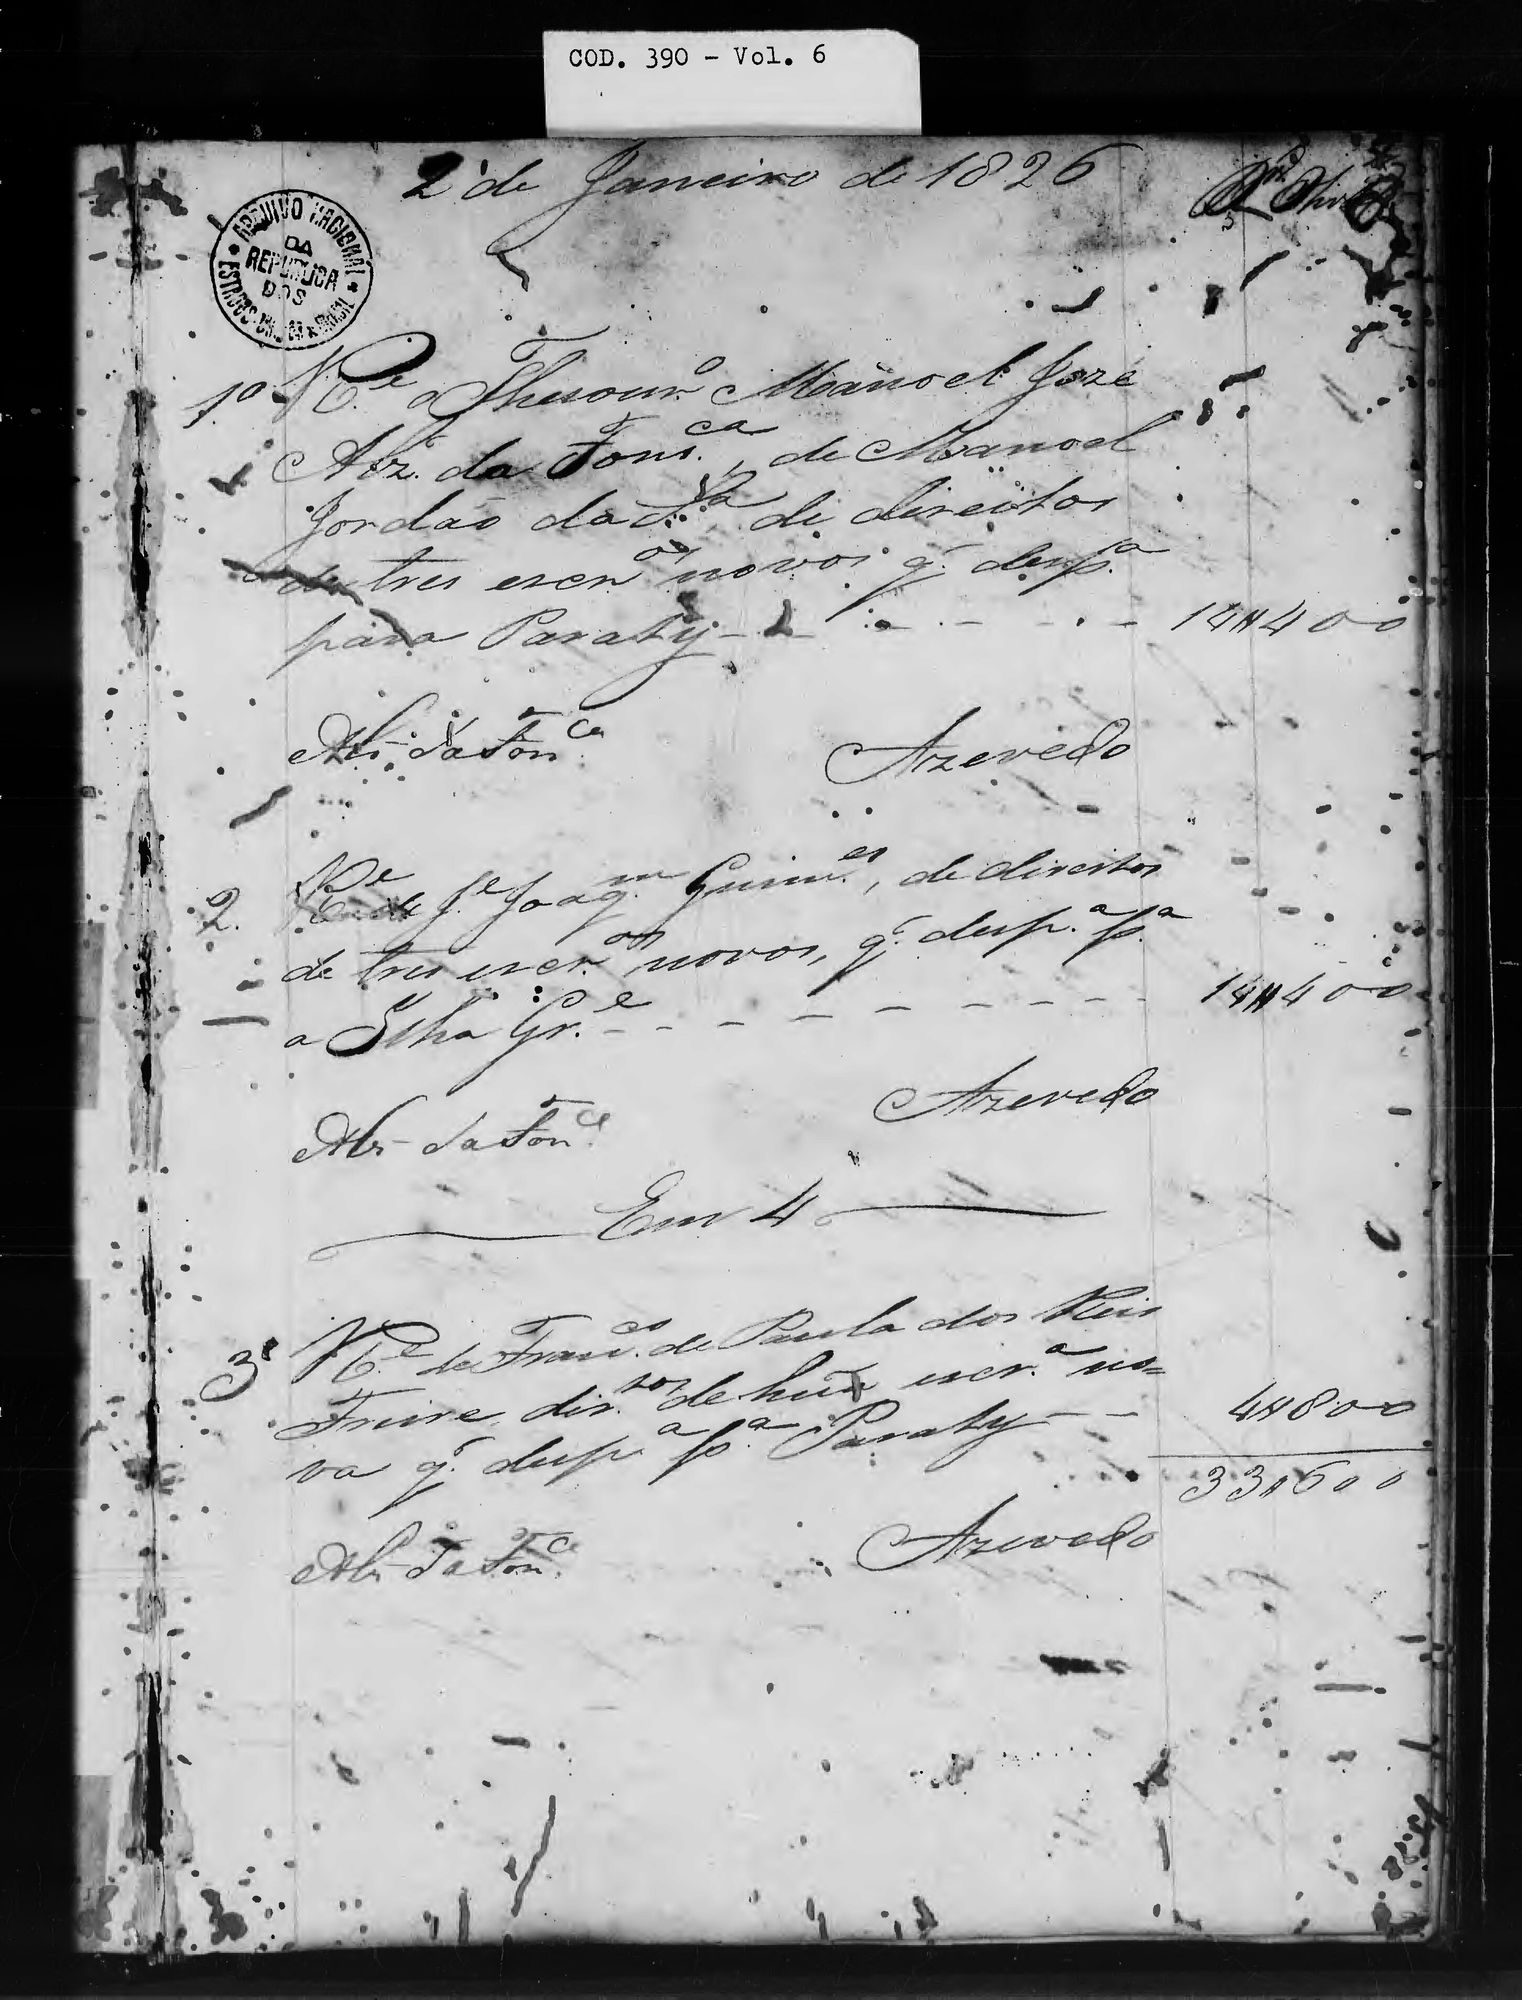 COD. 390 - Vol. 6
2 de Janeiro de 1826
ARQUIVO NACIONAL
DA
REPUBLICA
DOS
ESTADOS UNIDOS DO BRASIL
1º R.e o Thesour.o Manoel Joze
Alz. da Fons.ca, de Manoel
Jordão da S.a de direitos
de tres escr.os novos q. desp.a
para Paraty - - - - - 14#400
Alz da Fon.ca Azevedo
2. R.e de J.e Joaq.m Guim.es, de direitos
de tres escr.os novos, q. desp.a p.a
a Ilha Gr.e - - - - - - - 14#400
Alz da Fon.ca Azevedo
Em 4
3º R.e de Fran.co de Paula dos Reis
Freire dir.tos de huã escr.a no=
va q. desp.a p.a Paraty - - 4#800
33#600
Alz da Fon.ca Azevedo